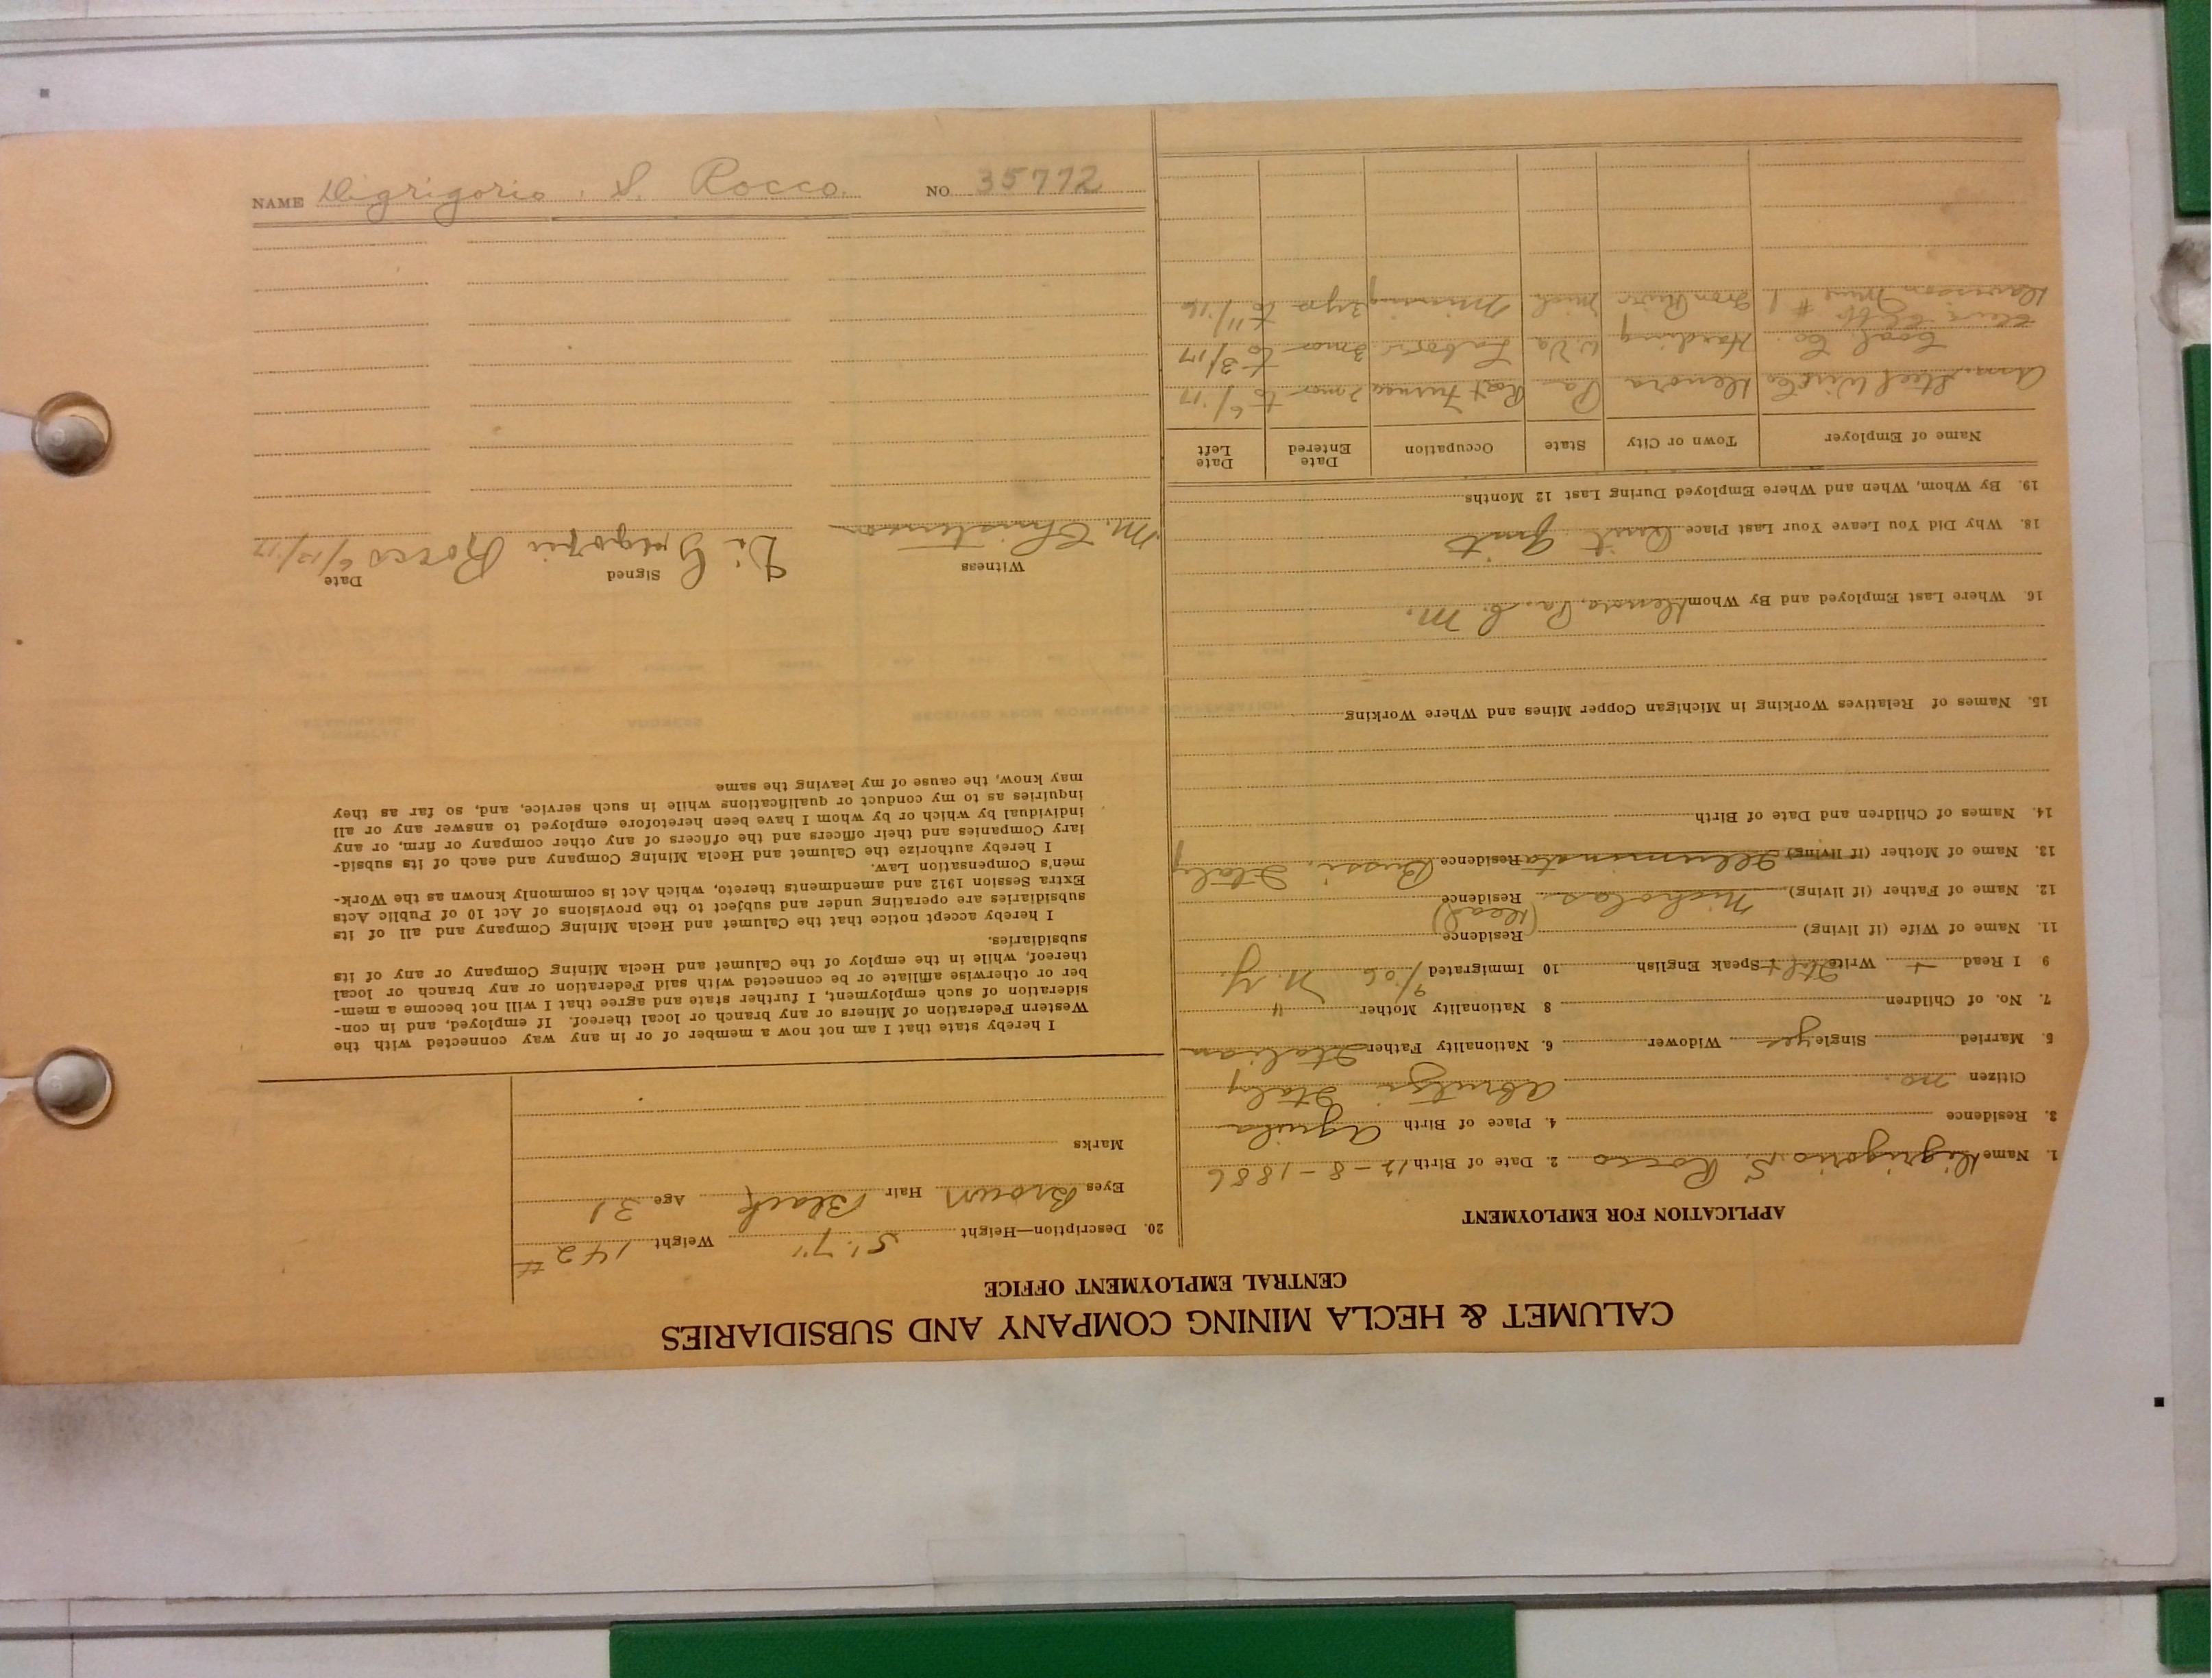 CALUMET & HECLA MINING COMPANY AND SUBSIDIARIES
CENTRAL EMPLOYMENT OFFICE
APPLICATION FOR EMPLOYMENT
1. Name Digrigorio S. Rocco 2. Date of Birth 12-8-1886
3. Residence 4. Place of Birth Aquila
Citizen no. Abrutzi Italy
5. Married Single yes Widower 6. Nationality Father Italian
7. No. of Children 8 Nationality Mother "
9 I Read + Write Ital + Speak English 10 Immigrated 9/06 N.Y.
11. Name of Wife (if living) Residence
12. Name of Father (if living) Nicholas Residence (Dead)
13. Name of Mother (if living) Residence Bussi, Italy
14. Names of Children and Date of Birth
15. Names of Relatives Working in Michigan Copper Mines and Where Working
16. Where Last Employed and By Whom Denora, Pa. M.
18. Why Did You Leave Your Last Place Quit
19. By Whom, When and Where Employed During Last 12 Months
Name of Employer Town or City State Occupation Date Entered Date Left
Am. Steel Wire Co Denora Pa 2 mos to 6/17
Coal Co. Harding W. Va Laborer 3 mos to 3/17
Davidson Mine #1 Iron River Mich Mining 3 yrs to 11/16
20. Description—Height 5' 7" Weight 142 #
Eyes Brown Hair Black Age 31
Marks
I hereby state that I am not now a member of or in any way connected with the
Western Federation of Miners or any branch or local thereof. If employed, and in con-
sideration of such employment, I further state and agree that I will not become a mem-
ber or otherwise affiliate or be connected with said Federation or any branch or local
thereof, while in the employ of the Calumet and Hecla Mining Company or any of its
subsidiaries.
I hereby accept notice that the Calumet and Hecla Mining Company and all of its
subsidiaries are operating under and subject to the provisions of Act 10 of Public Acts
Extra Session 1912 and amendments thereto, which Act is commonly known as the Work-
men's Compensation Law.
I hereby authorize the Calumet and Hecla Mining Company and each of its subsid-
iary Companies and their officers and the officers of any other company or firm, or any
individual by which or by whom I have been heretofore employed to answer any or all
inquiries as to my conduct or qualifications while in such service, and, so far as they
may know, the cause of my leaving the same
Witness Signed Date
M. Christenson Di Gregorii Rocco 6/13/17
NAME Digrigorio S. Rocco NO 35772